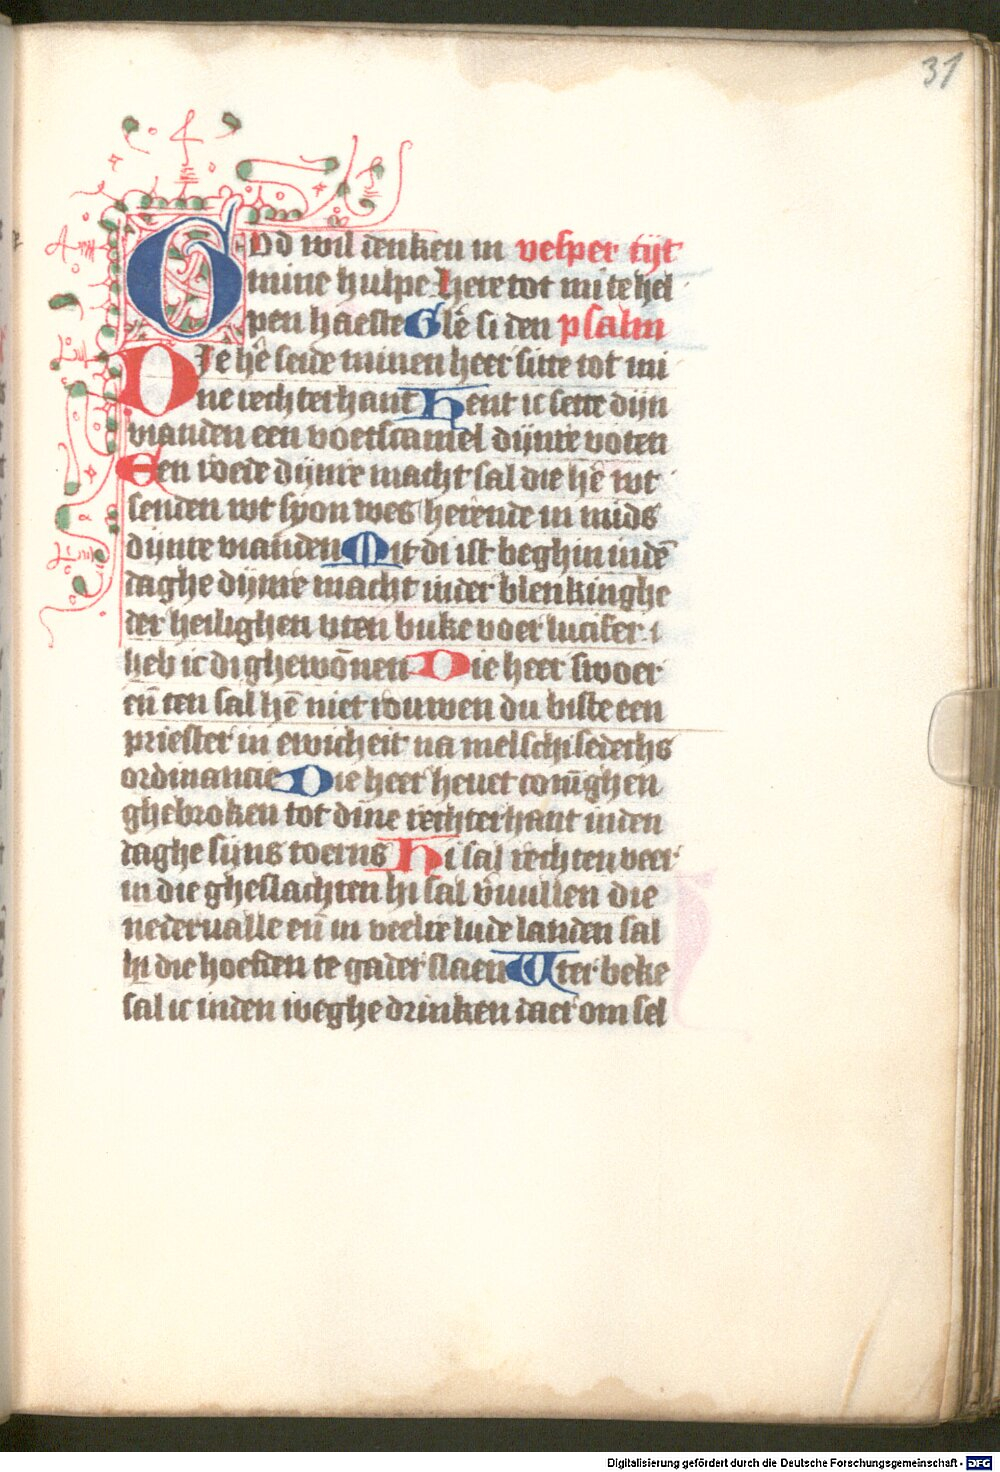 31
God wil denken in vesper tijt
mine hulpe here tot mi te hel
pen haeste Glē si den psalm
Die hē seide minen heer sitte tot mi
ne rechterhant Hent ic sette dijn
vianden een voetscamel dijnre voten
Een roede dijnre macht sal die hē wt
senden wt syon wes herende in mids
dijnre vianden Mit di ist beghin indē
daghe dijnre macht inder blenkinghe
der heilighen vten buke voer lucifer
heb ic di ghewōnen Die heer swoer
eñ ten sal hē niet rouwen du biste een
priester in ewicheit na melschisedechs
ordinancie Die heer hevet coniīghen
ghebroken tot dine rechterhant inden
daghe sijns toerns Hi sal rechten veer
in die gheslachten hi sal v̄uullen die
nedervalle eñ in veelre lude landen sal
hi die hoefden te gader slaen Uter beke
sal ic inden weghe drinken daer om sel
Digitalisierung gefördert durch die Deutsche Forschungsgemeinschaft - DFG